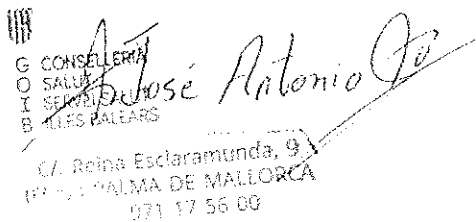 G CONSELLERIA
O SALUT
I SERVEI
B ILLES BALEARS
José Antonio
C/. Reina Esclaramunda, 9
PALMA DE MALLORCA
971 17 56 00